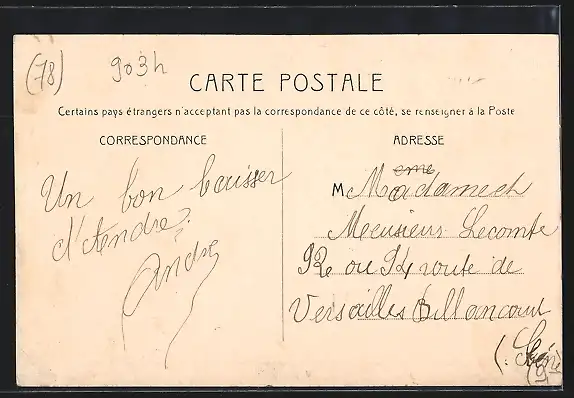 (78) 903h
CARTE POSTALE
Certains pays étrangers n'acceptant pas la correspondance de ce côté, se renseigner à la Poste
CORRESPONDANCE
Un bon baisser
d'Andre.
André
ADRESSE
M Madame et
Meusieur Lecomte
92 ou 94 route de
Versailles Billancourt
(Seine
(9